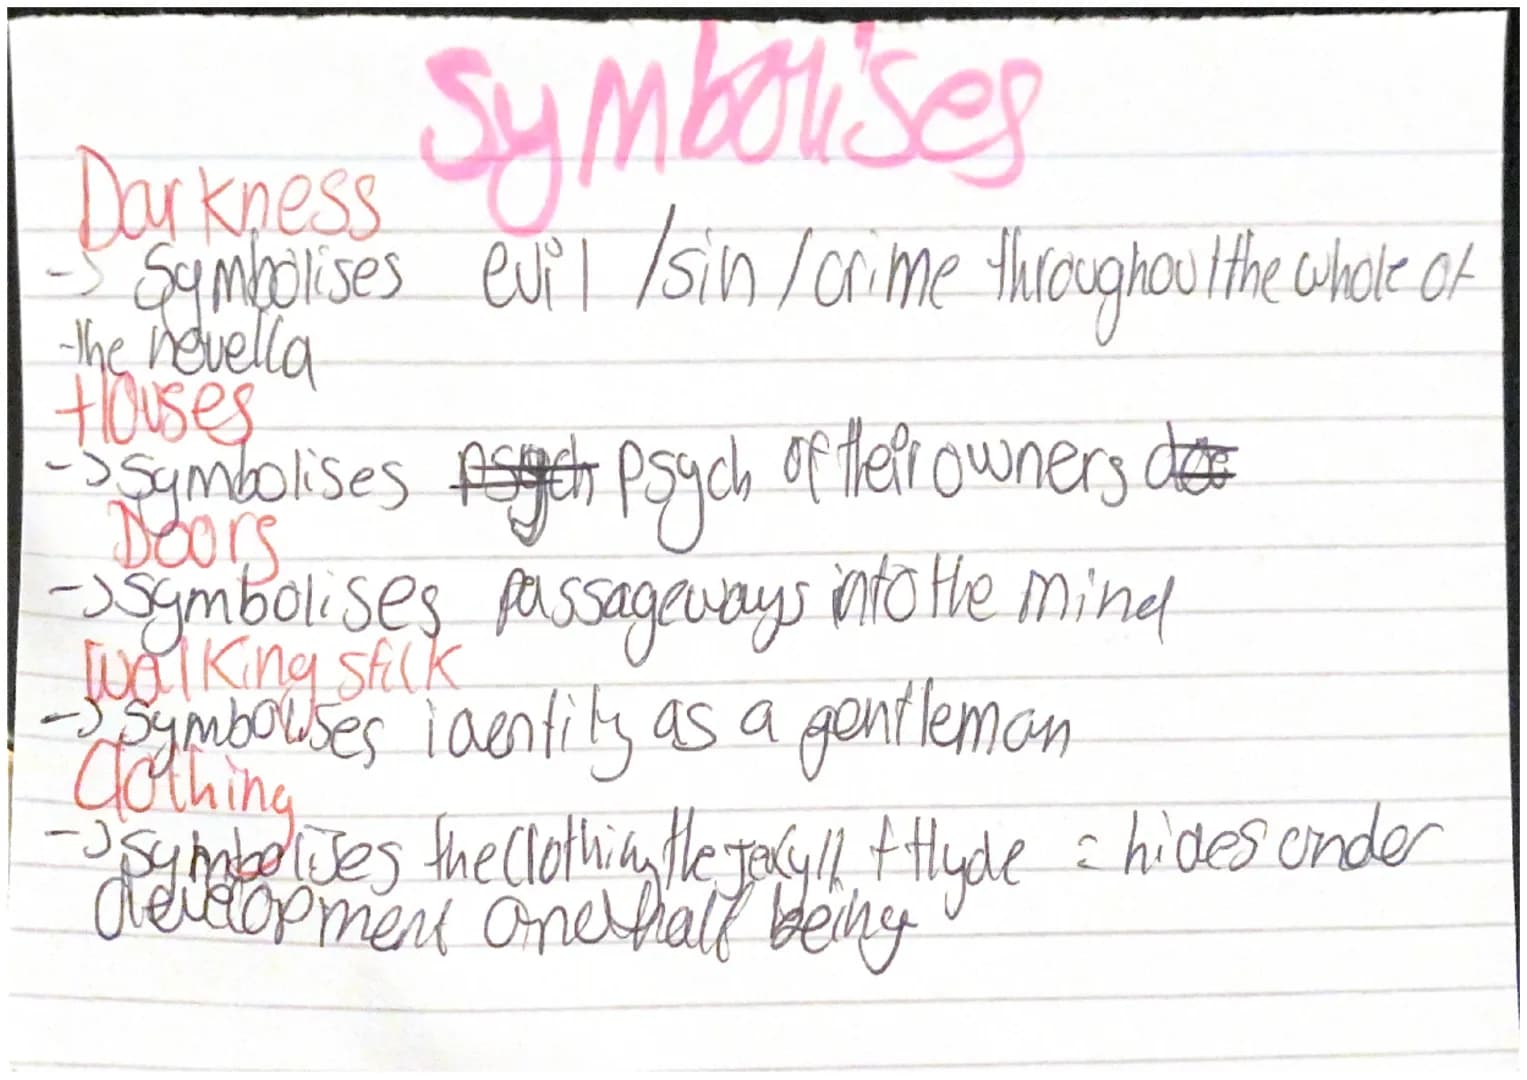 Symbolises
Darkness
-> Symbolises evil /sin / crime throughout the whole of
the novella
Houses
-> Symbolises psych psych of their owners doo
Doors
-> Symbolises passageways into the mind
Walking stick
-> Symbolises identity as a gentleman
Clothing
-> Symbolises the clothing the Jekyll + Hyde = hides under
development one half being